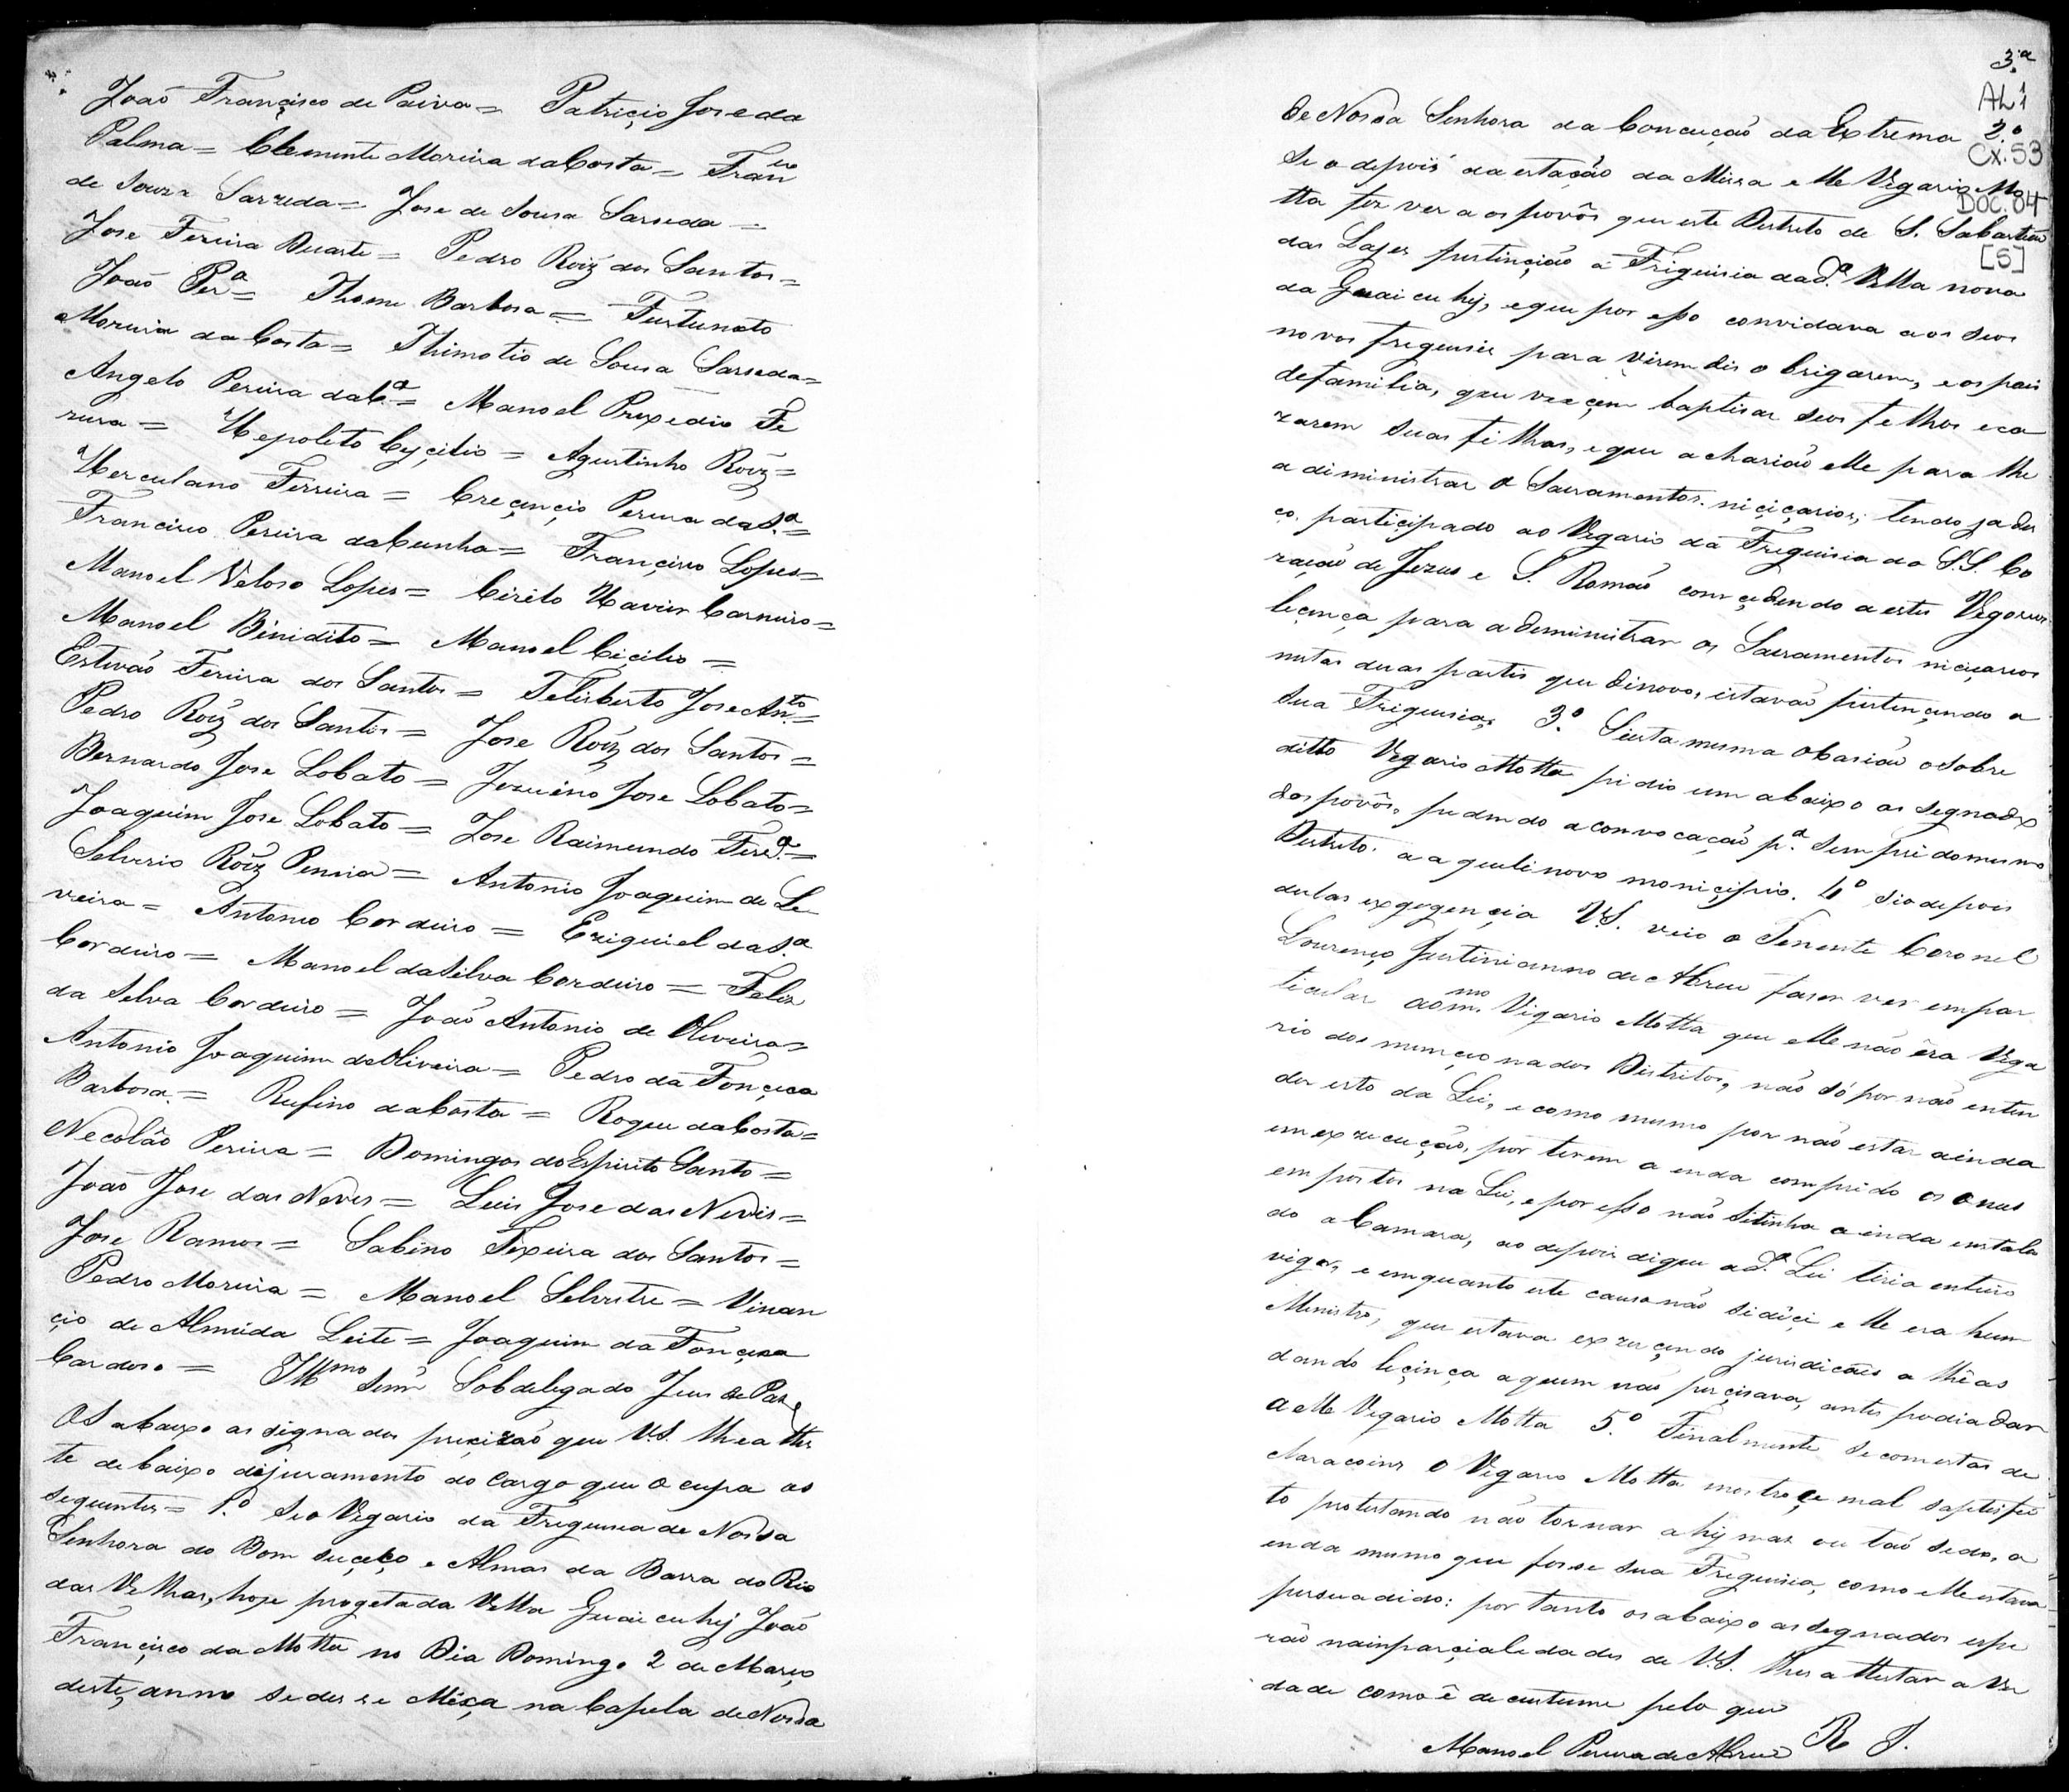 João Françisco de Paiva = Patriçio Jose da
Palma = Clemente Moreira da Costa = Fran.co
de Souza Sarzeda = Jose de Sousa Sarseda =
Jose Fereira Duarte = Pedro Roiz dos Santos =
João Per.a = Thome Barbosa = Furtunato
Moreira da Costa = Thimotio de Sousa Sarseda =
Angelo Pereira da C.a = Manoel Prexedio Fe
reira = Hepoleto Cyçilio = Agustinho Roiz =
Herculano Ferreira = Creçençio Pereira da S.a =
Francisco Pereira da Cunha = Françisco Lopes =
Manoel Veloso Lopes = Cirilo Xavier Carneiro =
Manoel Binidito = Manoel Ciçilio =
Estevão Fereira dos Santos = Felisberto Jose An.to =
Pedro Roiz dos Santos = Jose Roiz dos Santos =
Bernardo Jose Lobato = Jezuino Jose Lobato =
Joaquim Jose Lobato = Jose Raimundo Ferr.a =
Selverio Roiz Pereira = Antonio Joaquim de Le
veira = Antonio Cordeiro = Eziquiel da S.a
Cordeiro = Manoel da Silva Cordeiro = Felis
da Selva Cordeiro = João Antonio de Oliveira =
Antonio Joaquim de Oliveira = Pedro da Fonçeca
Barbosa = Rufino da Costa = Roque da Costa =
Necolão Pereira = Domingos do Espirito Santo =
João Jose das Neves = Luis Jose das Nevis =
Jose Ramos = Sabino Teixeira dos Santos =
Pedro Moreira = Manoel Selvestre = Vinan
çio de Almeida Leite = Joaquim da Fonçeca
Cardoso = Illmo Senr Sobdelegado Juis de Pas,
Os abaixo asdignados precizão que V.S. lhe atthes
te debaixo dijuramento do cargo que ocupa os
seguentes = 1.º Se o Vegario da Freguesia de Nossa
Senhora do Bom suçeço e Almas da Barra do Rio
das Velhas, hoje progetada Villa Guaicuhy João
Françisco da Motta no Dia Domingo 2 de Março
deste anno se deçe Missa na Capela de Nossa
3.ª
AL 1
2.º
CX: 53
DOC. 04
[5]
de Nossa Senhora da Conceição da Extrema
Se o depois da estação da Missa elle Vegario Mo
tta fez ver aos povôs que este Destreto de S. Sabastião
das Lages pertinçião a Friguisia da d.a Villa nova
da Guaicuhy, eque por esso convidava aos seus
novos freguises para virem dis o brigarem, e os pais
defamilia, que viecem baptisar seus felhos eca
zarem suas filhas, eque acharião elle para lhe
adiministrar os Sacramentos niçiçarios; tendo ja dis
ço participado ao Vegario da Freguisia do S.S. Co
ração de Jezus e S. Romão conçedendo a este Vegario
leçença paraadeministrar os Sacramentos niciçarios
nestas duas partes que dinovo, estavão pertençendo a
Sua Friguisia; 3.º Se esta mesma Ocasião o sobre
ditto Vegario Motta pidio um abaixo as segnado
dos povôs, pedindo aconvocação p.a sempri do mesmo
Destreto a aquele novo moniçipio. 4.º Si o depois
delas expgegençia V.S. veio o Tenente Coronel
Lourenço Justinianno de Abreu faser ver em par
ticular ao m.mo Vigario Motta que elle não êra Vega
rio dos mençionados Distritos, não só por não enten
der esto da Lei, e como mesmo por não estar ainda
em exzecução, por terem a enda comprido os onus
empostos na Lei, e por esso não Sitinha a enda enstala
do a Camara, ao depois dique a d.a Lei tiria enteiro
vigor, e emquanto este causo não sidêçi elle era hum
Menistro, que estava exzerçendo jurisdicões a lhêas
dando leçinça aquem não perçisava, antes podia dar
a elle Vegario Motta 5.º Finalmente Se com estas de
claracoins o Vegario Motta mostroçe mal sapitisfei
to protestando não tornar a hy mas ou tão sedo, a
enda mesmo que fosse sua Freguisia, como elle estava
persuadido: por tanto os abaixo asdegnados espe
rão na inparçialedades de V.S. lhes attestar a Ver
dade como ê de custume pelo que
Manoel Pereira de Abreu R J.